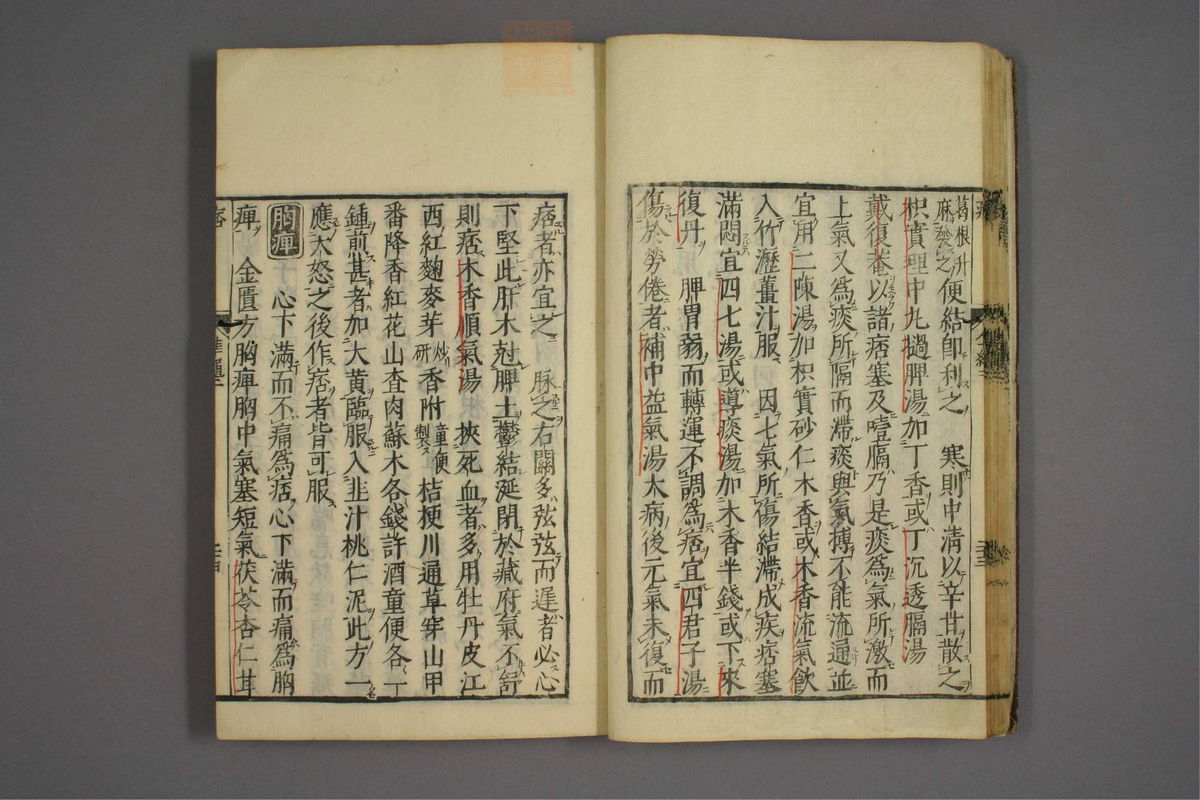 葛根升麻發之便結卽利之　寒則中淸以辛甘散之
枳實理中丸撾脾湯加丁香或丁沉透膈湯
戴復菴以諸痞塞及噎膈乃是痰爲氣所激而
上氣又爲痰所隔而滯痰與氣搏不能流通並
宜用二陳湯加枳實砂仁木香或木香流氣飮
入竹瀝薑汁服　因七氣所傷結滯成疾痞塞
滿悶宜四七湯或導痰湯加木香半錢或下來
復丹　脾胃弱而轉運不調爲痞宜四君子湯
傷於勞倦者補中益氣湯大病後元氣未復而
痞者亦宜之　脉之右關多弦弦而遲者必心
下堅此肝木尅脾土鬱結涎閉於藏府氣不舒
則痞木香順氣湯　挾死血者多用牡丹皮江
西紅麴麥芽炒研香附童便製桔梗川通草穿山甲
番降香紅花山査肉蘇木各錢許酒童便各一
鍾煎甚者加大黃臨服入韭汁桃仁泥此方一
應大怒之後作痞者皆可服
胸痺　心下滿而不痛爲痞心下滿而痛爲胸
痺　金匱方胸痺胸中氣塞短氣茯苓杏仁甘